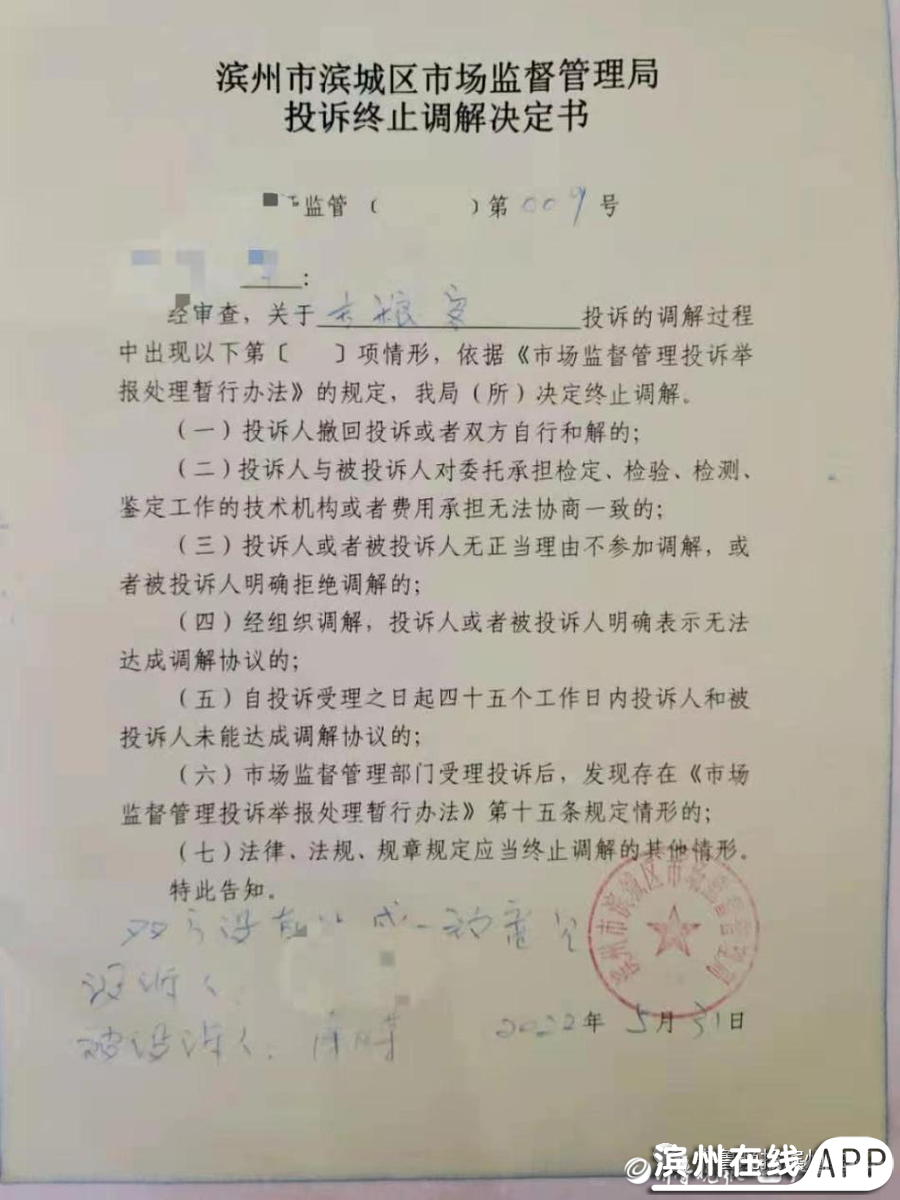 滨州市滨城区市场监督管理局
投诉终止调解决定书
监管（ ）第009号
：
经审查，关于 投诉的调解过程
中出现以下第〔 〕项情形，依据《市场监督管理投诉举
报处理暂行办法》的规定，我局（所）决定终止调解。
（一）投诉人撤回投诉或者双方自行和解的；
（二）投诉人与被投诉人对委托承担检定、检验、检测、
鉴定工作的技术机构或者费用承担无法协商一致的；
（三）投诉人或者被投诉人无正当理由不参加调解，或
者被投诉人明确拒绝调解的；
（四）经组织调解，投诉人或者被投诉人明确表示无法
达成调解协议的；
（五）自投诉受理之日起四十五个工作日内投诉人和被
投诉人未能达成调解协议的；
（六）市场监督管理部门受理投诉后，发现存在《市场
监督管理投诉举报处理暂行办法》第十五条规定情形的；
（七）法律、法规、规章规定应当终止调解的其他情形。
特此告知。
双方没有达成一致意见
投诉人：
被投诉人：
2022年5月31日
滨州市滨城区市场监督管理局
滨州在线APP